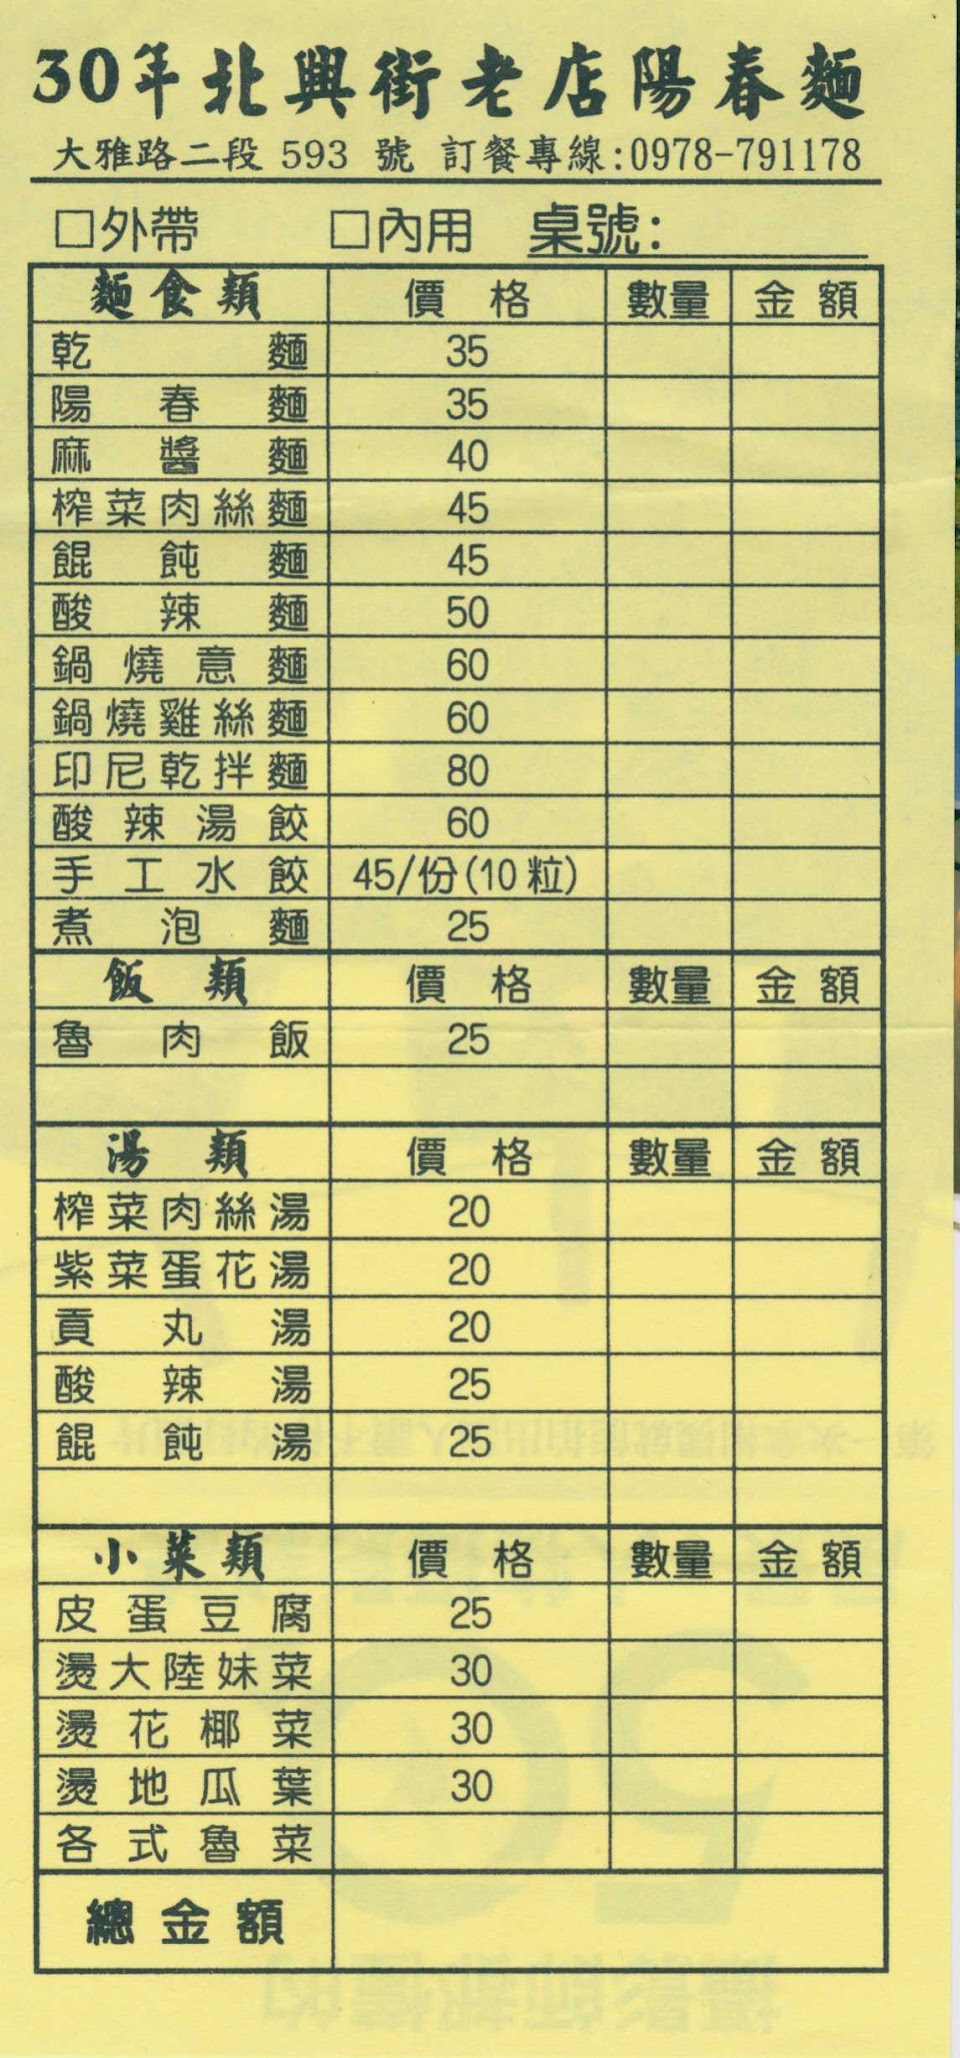 30年北興街老店陽春麵
大雅路二段 593 號 訂餐專線:0978-791178
□外帶 □內用 桌號:
麵食類 價格 數量 金額
乾麵 35
陽春麵 35
麻醬麵 40
榨菜肉絲麵 45
餛飩麵 45
酸辣麵 50
鍋燒意麵 60
鍋燒雞絲麵 60
印尼乾拌麵 80
酸辣湯餃 60
手工水餃 45/份(10粒)
煮泡麵 25
飯類 價格 數量 金額
魯肉飯 25
湯類 價格 數量 金額
榨菜肉絲湯 20
紫菜蛋花湯 20
貢丸湯 20
酸辣湯 25
餛飩湯 25
小菜類 價格 數量 金額
皮蛋豆腐 25
燙大陸妹菜 30
燙花椰菜 30
燙地瓜葉 30
各式魯菜
總金額